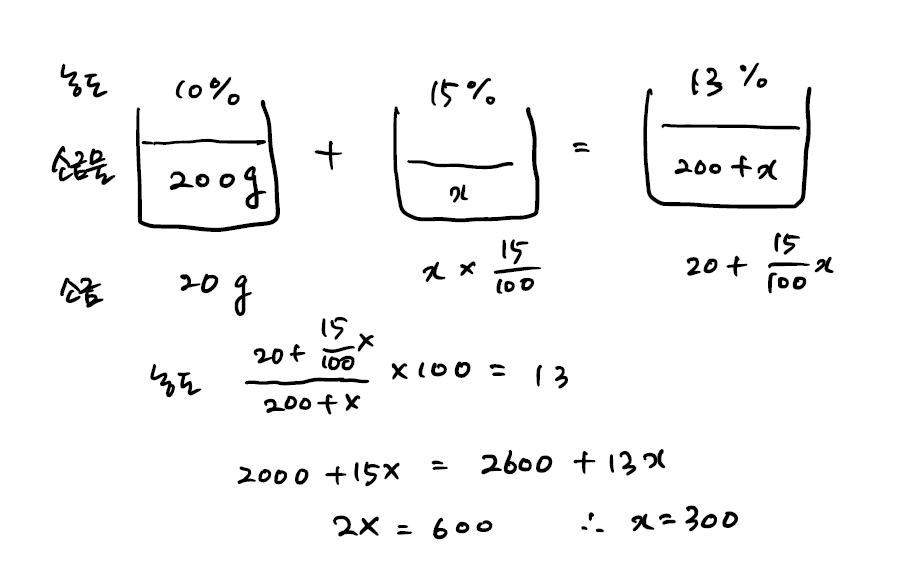 농도 10% 15% 13%
소금물 200g + x = 200+x
소금 20g x × 15/100 20 + 15/100 x
농도 (20 + 15/100 x)/(200+x) × 100 = 13
2000 + 15x = 2600 + 13x
2x = 600 ∴ x = 300